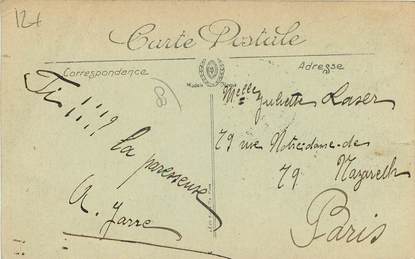 121
Carte Postale
Correspondance
Adresse
Modèle
88
Ti !!!?
la paresseuse
A. Jarre
Melle Juliette Laser
79 rue Notre-dame-de
79 Nazareth
Paris